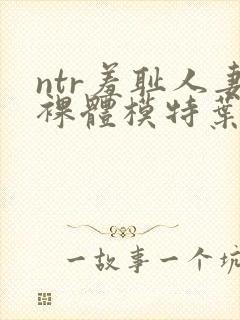 ntr羞耻人妻
裸體模特葉
一故事一个坑